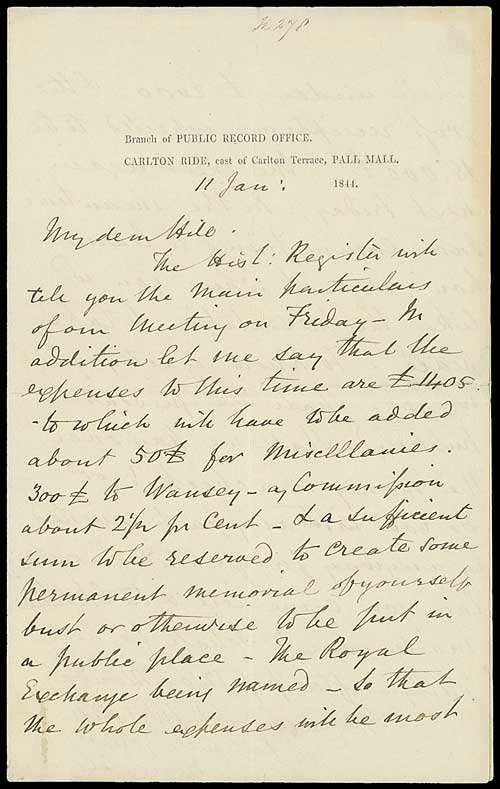 278
Branch of PUBLIC RECORD OFFICE.
CARLTON RIDE, east of Carlton Terrace, PALL MALL.
11 Jany. 1844.
My dear Hill.
The Hist: Register will
tell you the main particulars
of our Meeting on Friday – In
addition let me say that the
expenses to this time are £1405.
– to which will have to be added
about 50£ for Miscelllanies.
300£ to Wansey – a Commission
about 2½ pr Cent – & a sufficient
sum to be reserved to create some
permanent memorial of yourself
bust or otherwise to be put in
a public place – The Royal
Exchange being named – So that
the whole expenses will be most